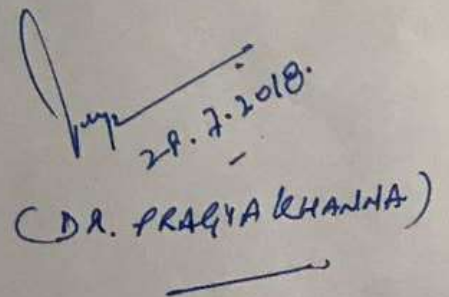 28.7.2018.
(DR. PRAGYA KHANNA)